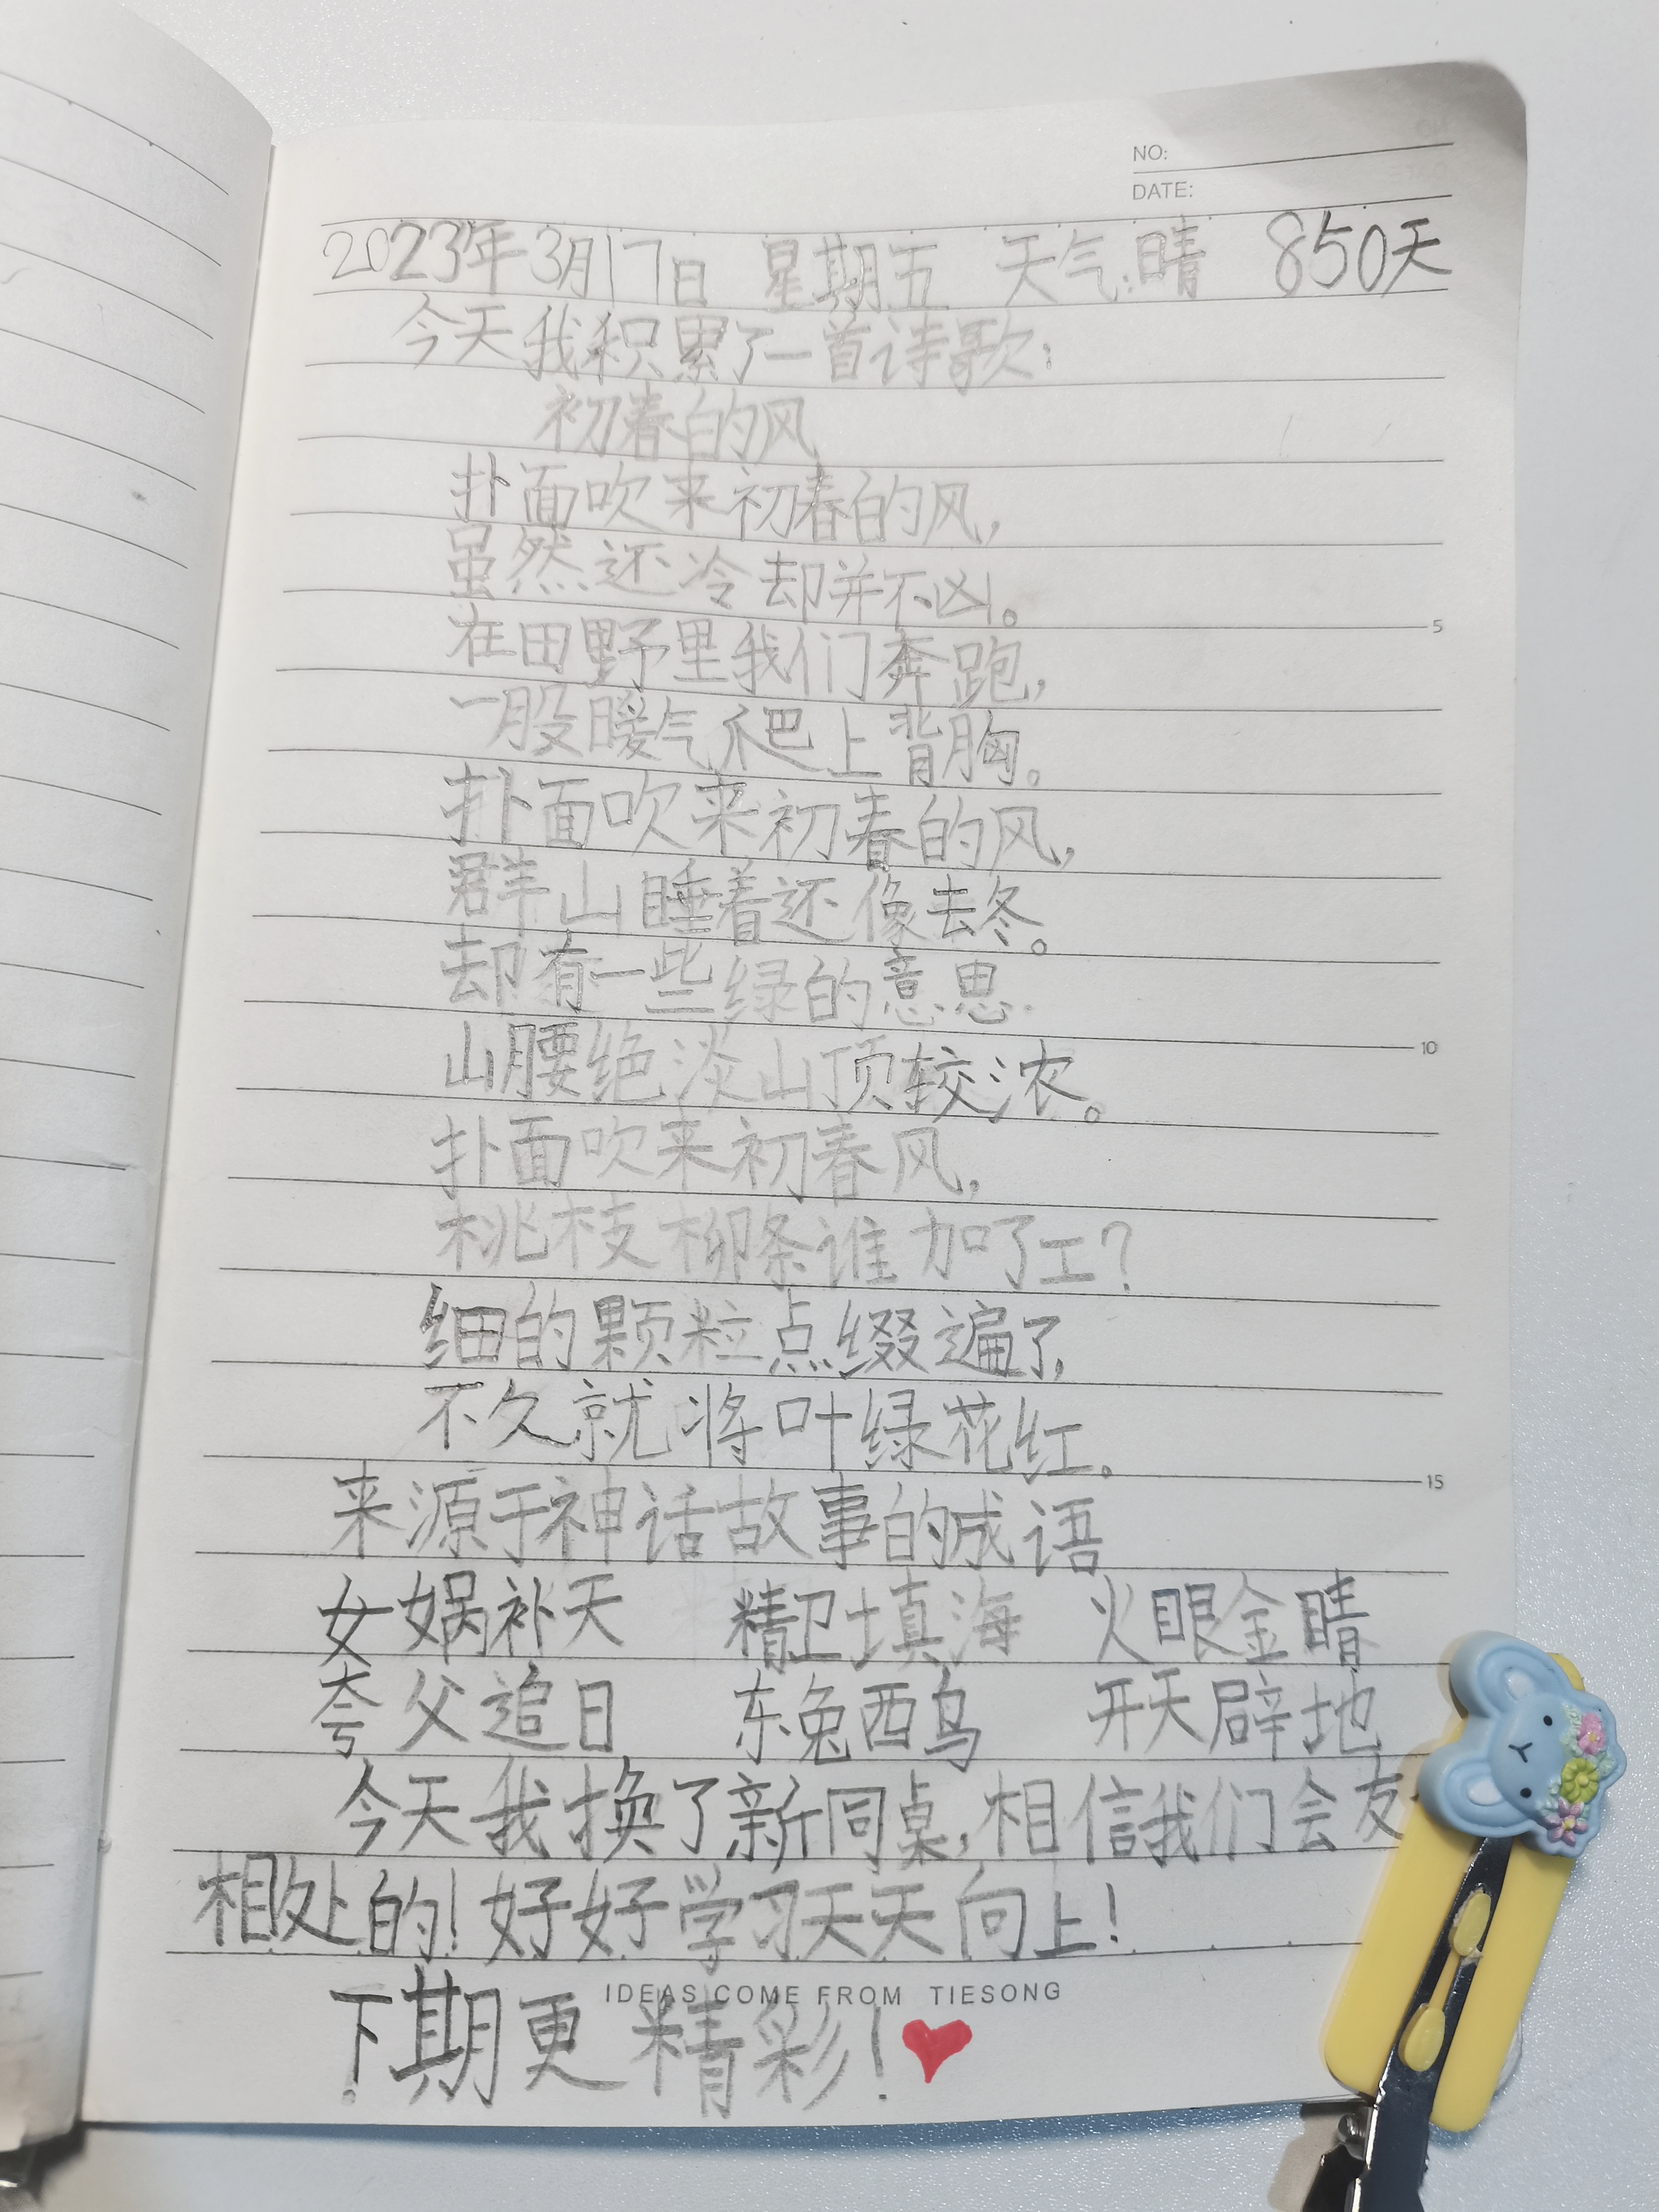 NO:
DATE:
2023年3月17日 星期五 天气:晴 850天
今天我积累了一首诗歌:
初春的风
扑面吹来初春的风,
虽然还冷却并不凶。
在田野里我们奔跑,
一股暖气爬上背胸。
扑面吹来初春的风,
群山睡着还像去冬。
却有一些绿的意思.
山腰绝淡山顶较浓。
扑面吹来初春风,
桃枝柳条谁加了工?
细的颗粒点缀遍了,
不久就将叶绿花红。
来源于神话故事的成语
女娲补天 精卫填海 火眼金睛
夸父追日 东兔西乌 开天辟地
今天我换了新同桌,相信我们会友
相处的!好好学习天天向上!
IDEAS COME FROM TIESONG
下期更精彩!
5
10
15